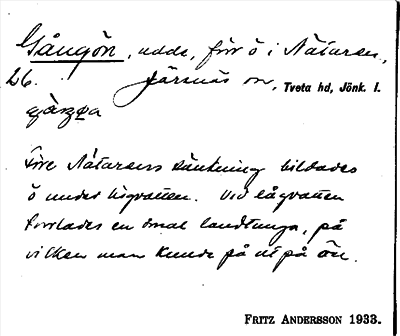 Gångön, udde, förr ö i Nätaren,
26. Järsnäs sn, Tveta hd, Jönk. l.
Före Nätarens sänkning bildades
ö under högvatten. Vid lågvatten
torrlades en smal landtunga, på
vilken man kunde gå ut på ön.
FRITZ ANDERSSON 1933.